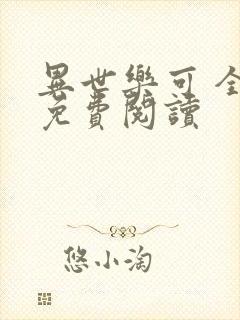 異世樂可 全
免費閱讀
悠小淘